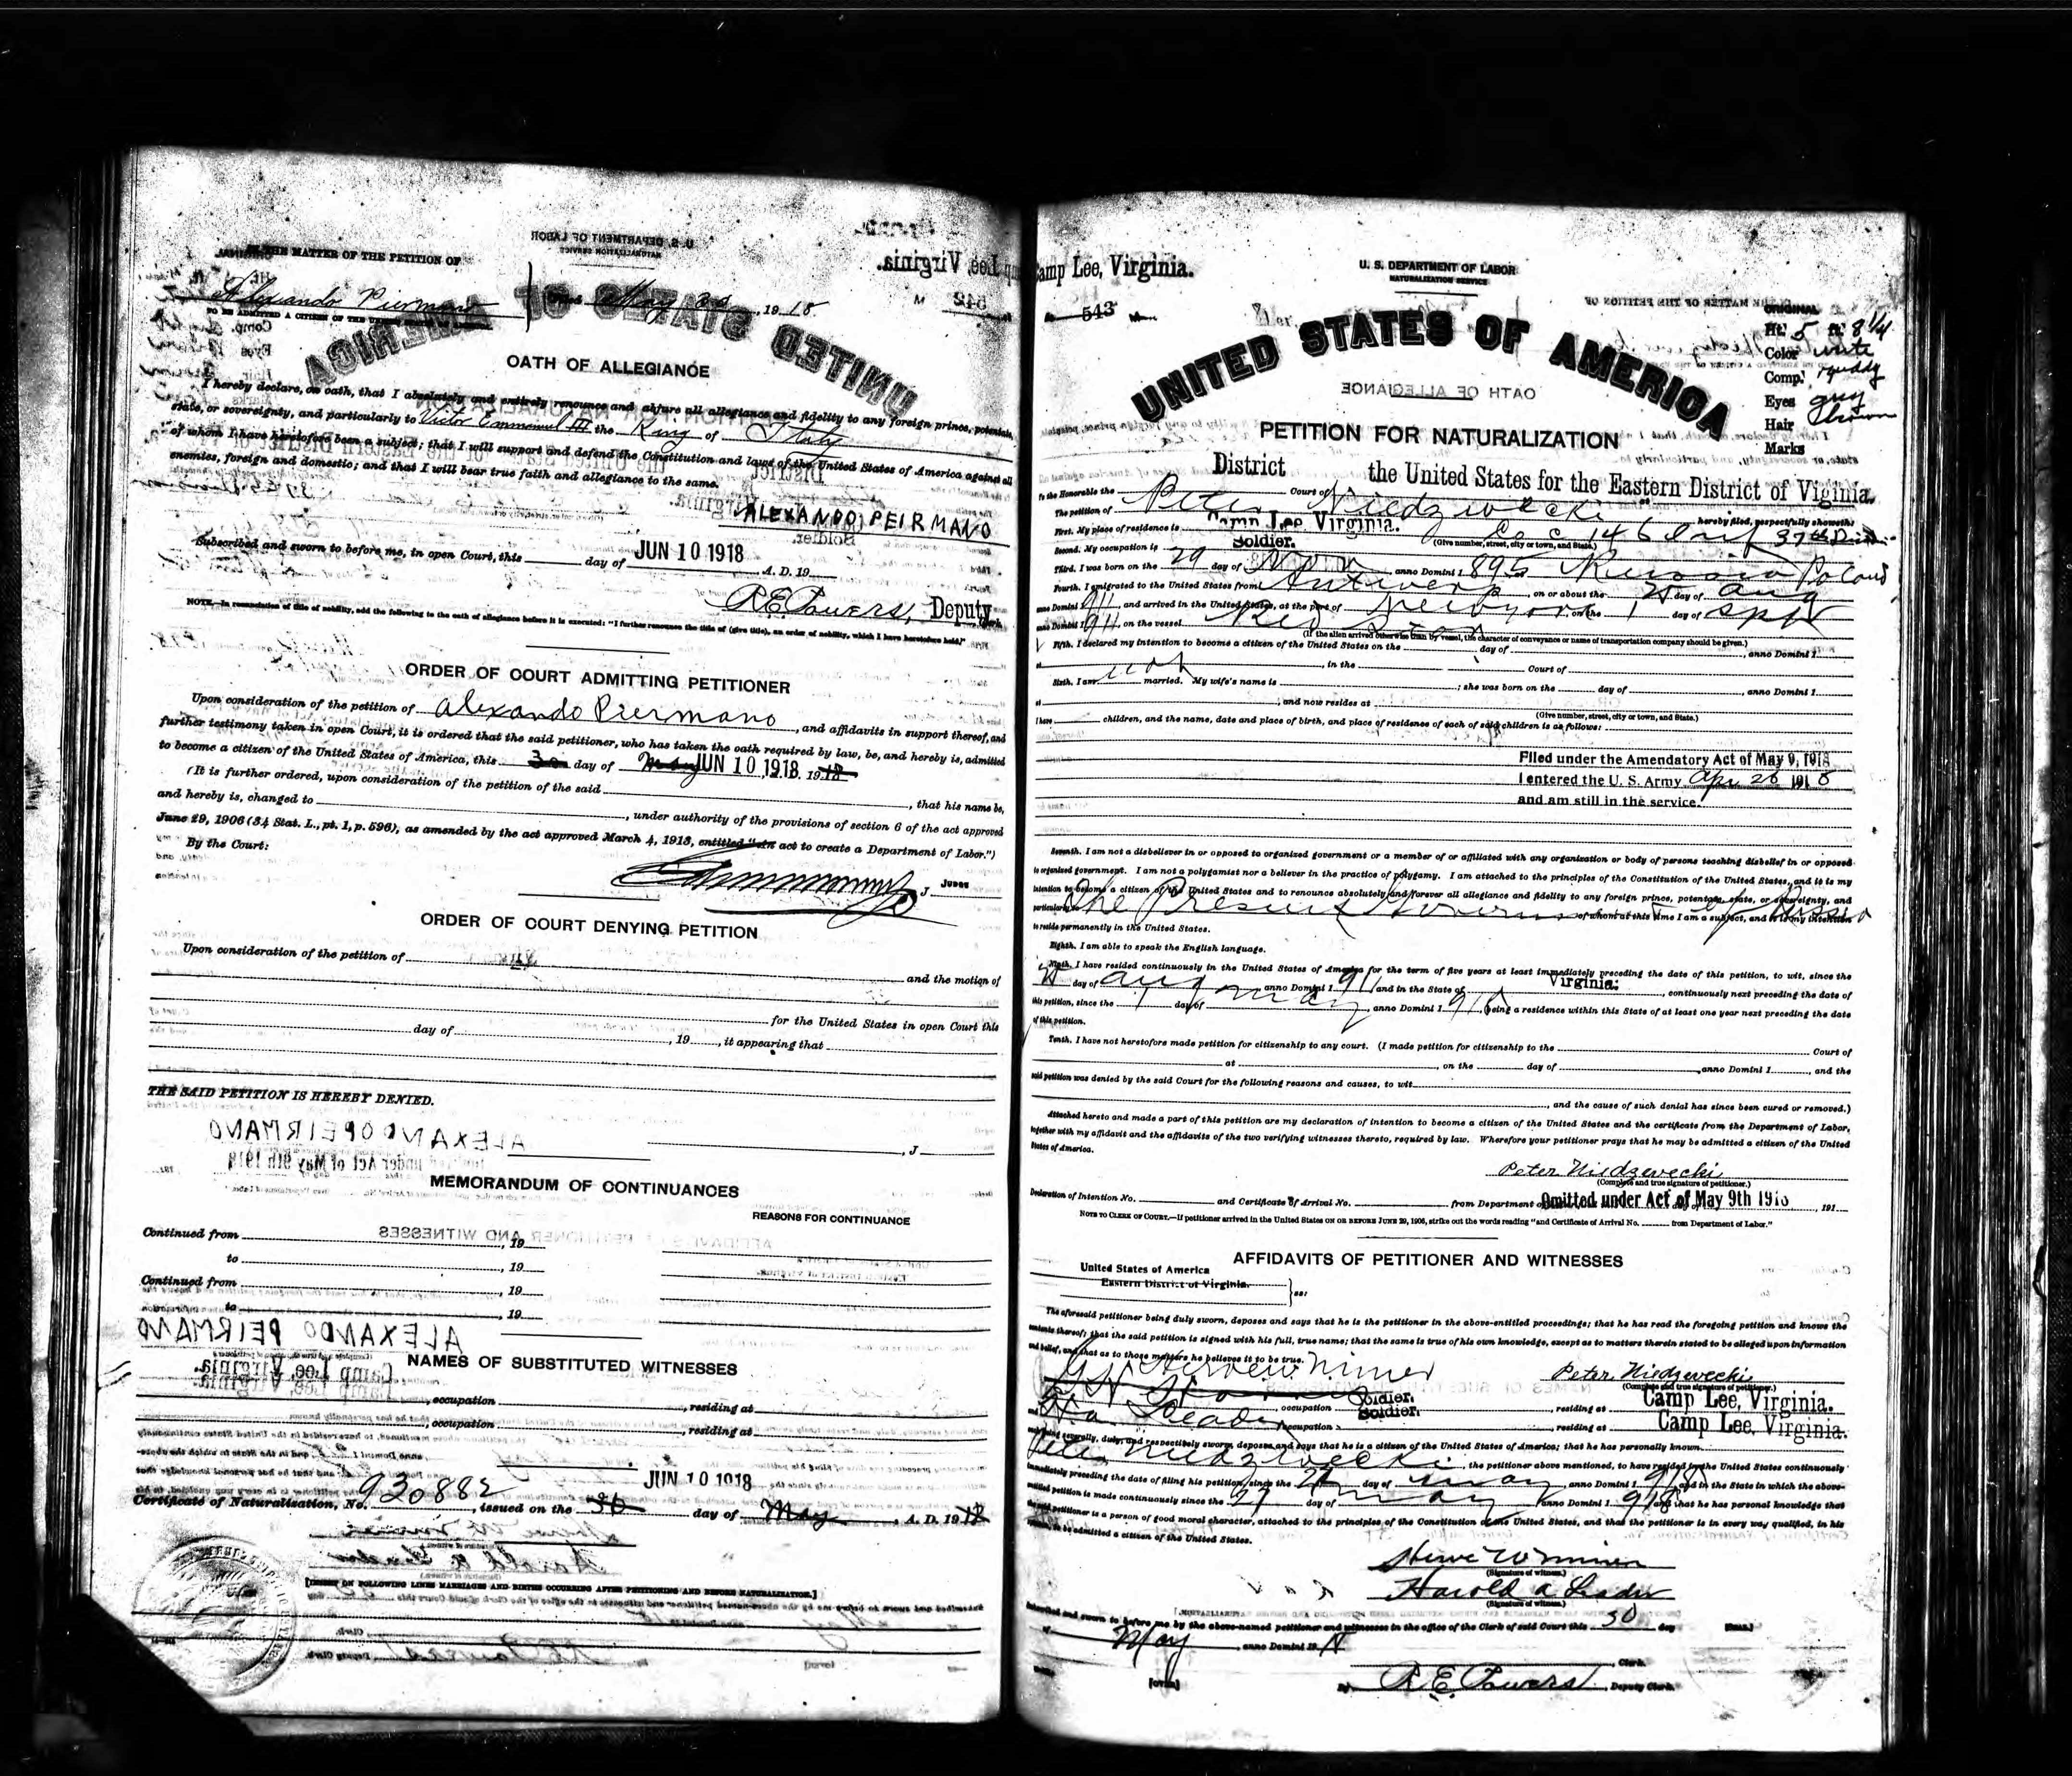 IN THE MATTER OF THE PETITION OF
Alexando Piermano
TO BE ADMITTED A CITIZEN OF THE UNITED STATES OF AMERICA
May 30, 1918
OATH OF ALLEGIANCE
I hereby declare, on oath, that I absolutely and entirely renounce and abjure all allegiance and fidelity to any foreign prince, potentate,
state, or sovereignty, and particularly to Victor Emmanuel III the King of Italy
of whom I have heretofore been a subject; that I will support and defend the Constitution and laws of the United States of America against all
enemies, foreign and domestic; and that I will bear true faith and allegiance to the same.
ALEXANDO PEIRMANO
Subscribed and sworn to before me, in open Court, this day of JUN 10 1918, A. D. 19
R E Powers, Deputy Clerk.
NOTE.—In renunciation of title of nobility, add the following to the oath of allegiance before it is executed: "I further renounce the title of (give title), an order of nobility, which I have heretofore held."
ORDER OF COURT ADMITTING PETITIONER
Upon consideration of the petition of Alexando Piermano, and affidavits in support thereof, and
further testimony taken in open Court, it is ordered that the said petitioner, who has taken the oath required by law, be, and hereby is, admitted
to become a citizen of the United States of America, this 30 day of May JUN 10 1918, 1918
(It is further ordered, upon consideration of the petition of the said , that his name be,
and hereby is, changed to , under authority of the provisions of section 6 of the act approved
June 29, 1906 (34 Stat. L., pt. 1, p. 596), as amended by the act approved March 4, 1913, entitled "An act to create a Department of Labor.")
By the Court:
J JUDGE
ORDER OF COURT DENYING PETITION
Upon consideration of the petition of
and the motion of
for the United States in open Court this
day of , 19 , it appearing that
THE SAID PETITION IS HEREBY DENIED.
, J
MEMORANDUM OF CONTINUANCES
REASONS FOR CONTINUANCE
Continued from , 19
to , 19
Continued from , 19
to , 19
NAMES OF SUBSTITUTED WITNESSES
, occupation , residing at
, occupation , residing at
JUN 10 1918
Certificate of Naturalization, No. 930882, issued on the 30 day of May, A. D. 1918
[INSERT ON FOLLOWING LINES MARRIAGES AND BIRTHS OCCURRING AFTER PETITIONING AND BEFORE NATURALIZATION.]
Camp Lee, Virginia.
U. S. DEPARTMENT OF LABOR
NATURALIZATION SERVICE
543
ORIGINAL
Ht. 5 ft 8 1/4
Color white
Comp. ruddy
Eyes grey
Hair Brown
Marks
UNITED STATES OF AMERICA
PETITION FOR NATURALIZATION
District the United States for the Eastern District of Viginia.
To the Honorable the Court of
The petition of Peter Niedzwecki hereby filed, respectfully showeth:
First. My place of residence is Camp Lee, Virginia. Co C 146 Inf 37th Div.
(Give number, street, city or town, and State.)
Second. My occupation is Soldier.
Third. I was born on the 29 day of anno Domini 1895 Russia Poland
Fourth. I emigrated to the United States from Antwerp, on or about the day of Aug
anno Domini 1911, and arrived in the United States, at the port of New York on the 1 day of Sept
anno Domini 1911, on the vessel Red Star
(If the alien arrived otherwise than by vessel, the character of conveyance or name of transportation company should be given.)
Fifth. I declared my intention to become a citizen of the United States on the day of , anno Domini 1
at , in the Court of
Sixth. I am not married. My wife's name is ; she was born on the day of , anno Domini 1
at , and now resides at
(Give number, street, city or town, and State.)
I have children, and the name, date and place of birth, and place of residence of each of said children is as follows:
Filed under the Amendatory Act of May 9, 1918
I entered the U. S. Army Apr 26 1918
and am still in the service.
Seventh. I am not a disbeliever in or opposed to organized government or a member of or affiliated with any organization or body of persons teaching disbelief in or opposed
to organized government. I am not a polygamist nor a believer in the practice of polygamy. I am attached to the principles of the Constitution of the United States, and it is my
intention to become a citizen of the United States and to renounce absolutely and forever all allegiance and fidelity to any foreign prince, potentate, state, or sovereignty, and
particularly to The Present Government of Russia of whom at this time I am a subject, and it is my intention
to reside permanently in the United States.
Eighth. I am able to speak the English language.
Ninth. I have resided continuously in the United States of America for the term of five years at least immediately preceding the date of this petition, to wit, since the
day of Aug, anno Domini 1911 and in the State of Virginia:, continuously next preceding the date of
this petition, since the day of May, anno Domini 1918, being a residence within this State of at least one year next preceding the date
of this petition.
Tenth. I have not heretofore made petition for citizenship to any court. (I made petition for citizenship to the Court of
at , on the day of , anno Domini 1 , and the
said petition was denied by the said Court for the following reasons and causes, to wit
, and the cause of such denial has since been cured or removed.)
Attached hereto and made a part of this petition are my declaration of intention to become a citizen of the United States and the certificate from the Department of Labor,
together with my affidavit and the affidavits of the two verifying witnesses thereto, required by law. Wherefore your petitioner prays that he may be admitted a citizen of the United
States of America.
Peter Niedzevecki
(Complete and true signature of petitioner.)
Declaration of Intention No. and Certificate of Arrival No. from Department of Omitted under Act of May 9th 1918, 191
NOTE TO CLERK OF COURT.—If petitioner arrived in the United States ON OR BEFORE JUNE 29, 1906, strike out the words reading "and Certificate of Arrival No. from Department of Labor."
AFFIDAVITS OF PETITIONER AND WITNESSES
United States of America
Eastern District of Virginia. ss:
The aforesaid petitioner being duly sworn, deposes and says that he is the petitioner in the above-entitled proceedings; that he has read the foregoing petition and knows the
contents thereof; that the said petition is signed with his full, true name; that the same is true of his own knowledge, except as to matters therein stated to be alleged upon information
and belief, and that as to those matters he believes it to be true.
Peter Niedzevecki
(Complete and true signature of petitioner.)
occupation Soldier., residing at Camp Lee, Virginia.
H. a. Leader, occupation Soldier., residing at Camp Lee, Virginia.
each being severally, duly, and respectively sworn, deposes and says that he is a citizen of the United States of America; that he has personally known
Peter Niedzwecki, the petitioner above mentioned, to have resided in the United States continuously
immediately preceding the date of filing his petition, since the day of May, anno Domini 1918 and in the State in which the above-
entitled petition is made continuously since the 27 day of May, anno Domini 1918 and that he has personal knowledge that
the said petitioner is a person of good moral character, attached to the principles of the Constitution of the United States, and that the petitioner is in every way qualified, in his
opinion, to be admitted a citizen of the United States.
(Signature of witness.)
Harold A Leader
(Signature of witness.)
Subscribed and sworn to before me by the above-named petitioner and witnesses in the office of the Clerk of said Court this 30 day
of May, anno Domini 19
, Clerk.
[OVER]
By R E Powers, Deputy Clerk.